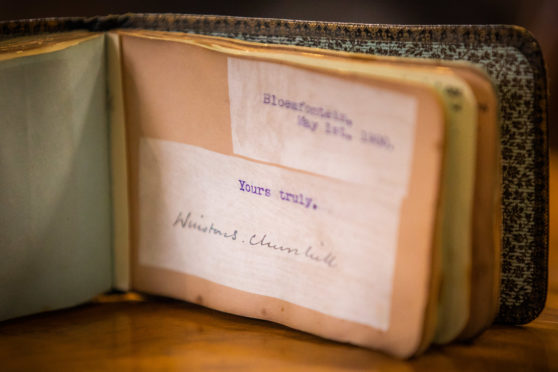 Bloemfontein,
May 1st. 1900.
Yours truly,
Winston S. Churchill